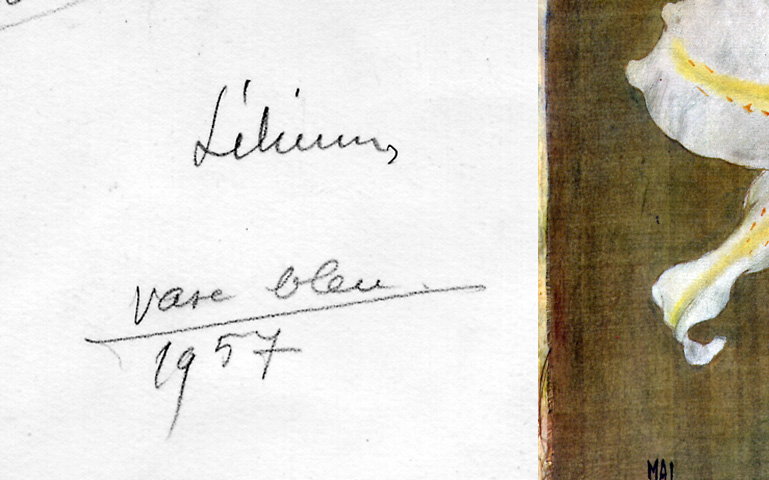 Lilium,
vase bleu.
1957
MAI